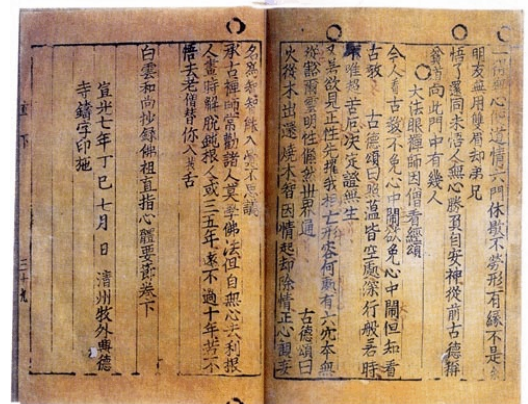 一得無心便道情六門休歇不勞形有緣不是余
朋友無用雙眉却弟兄
悟了還同未悟人無心勝負自安神從前古德稱
貧道向此門中有幾人
大法眼禪師因僧看經頌
今人看古教不免心中鬧欲免心中鬧但知看
古教 古德頌曰照蘊皆空處深行般若時
唯超苦厄決定證無生
欲見正性先掃我相亡形容何處有六本無
豁爾雲明性儼然世界通 古德頌曰
火從木出還燒木智因情起却除情正心觀妄
名爲智智能入於不思議
承古禪師常勸諸人莫學佛法但自無心去利根
人晝時解脫鈍根人或三五年遠不過十年若不
悟去老僧替你入拔舌
白雲和尙抄錄佛祖直指心體要節卷下
宣光七年丁巳七月 日 淸州牧外興德
寺鑄字印施
直 下 三十九